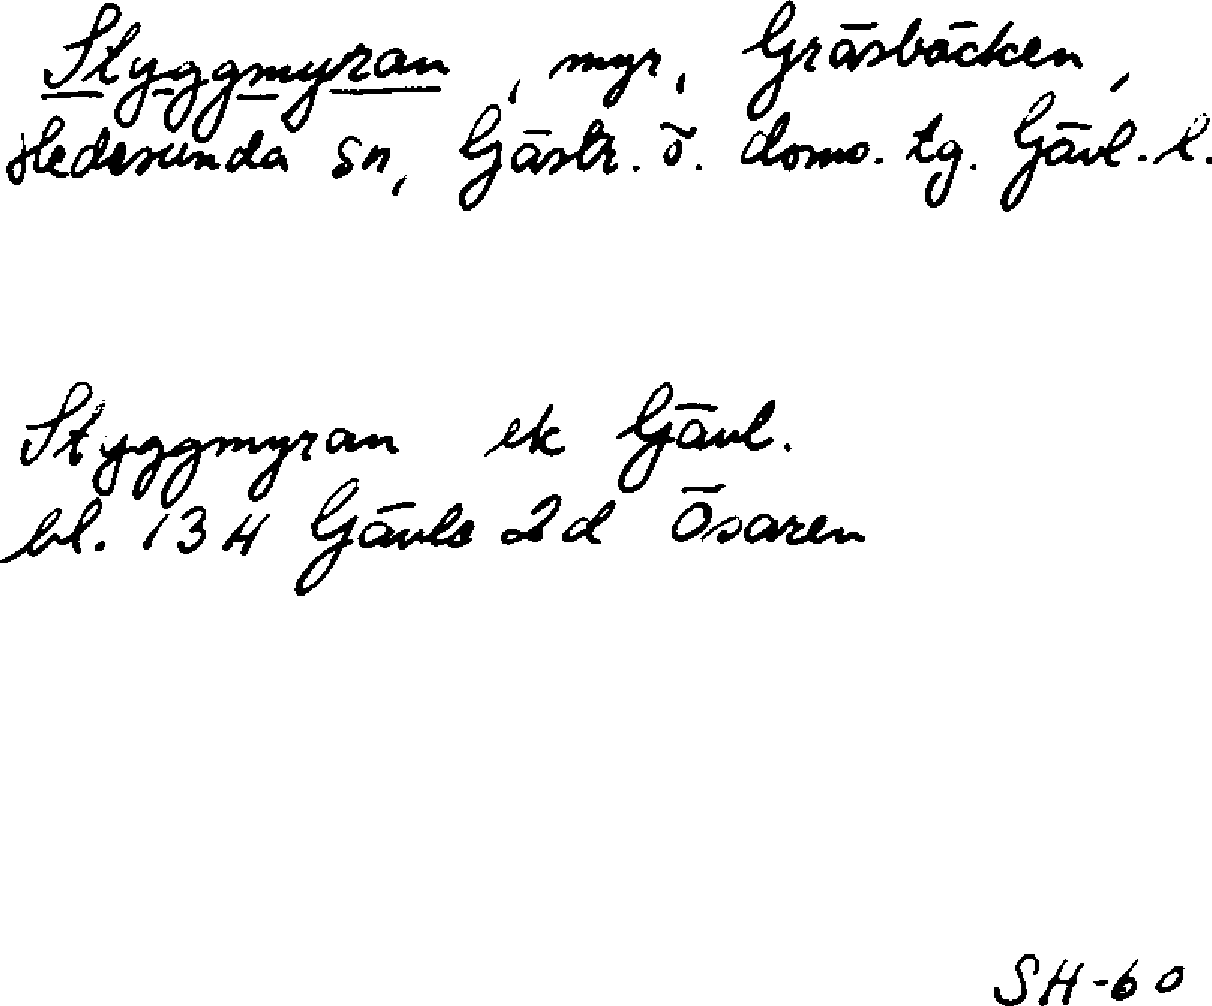 Styggmyran, myr, Gräsbäcken,
Hedesunda sn, Gästr. ö. doms. tg. Gävl. l.
Styggmyran ek Gävl.
bl. 134 Gävle 2d Ösaren
SH-60